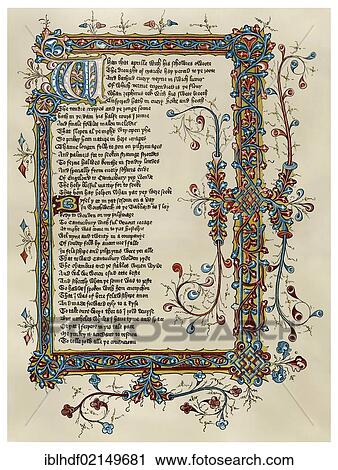 Whan that aprille with his shoures soote
The drought of marche hath perced to the roote
And bathed every veyne in swich licour
Of which vertue engendred is the flour
Whan zephirus eek with his swete breeth
Inspired hath in every holt and heeth
The tendre croppes and the yonge sonne
hath in the Ram his halfe cours y ronne
And smale foweles maken melodie
That slepen al the nyght with open eye
So priketh hem nature in hir corages
Thanne longen folk to goon on pilgrimages
And palmeres for to seken straunge strondes
To ferne halwes kowthe in sondry londes
And specially from every shires ende
Of Engelond to Caunterbury they wende
The holy blisful martir for to seke
That hem hath holpen whan that they were seke
Bifel that in that seson on a day
In Southwerk at the Tabard as I lay
Redy to wenden on my pilgrymage
To Caunterbury with ful devout corage
At nyght was come in to that hostelrie
Wel nyne and twenty in a compaignye
Of sondry folk by aventure yfalle
In felaweshipe and pilgrimes were they alle
That toward Caunterbury wolden ryde
The chambres and the stables weren wyde
And wel we weren esed atte beste
And shortly whan the sonne was to reste
So hadde I spoken with hem everychon
That I was of hir felaweshipe anon
And made forward erly for to ryse
To take oure wey ther as I yow devyse
But nathelees whil I have tyme and space
Er that I ferther in this tale pace
Me thynketh it acordant to resoun
To telle yow al the condicioun
© fotosearch
iblhdf02149681 www.fotosearch.com